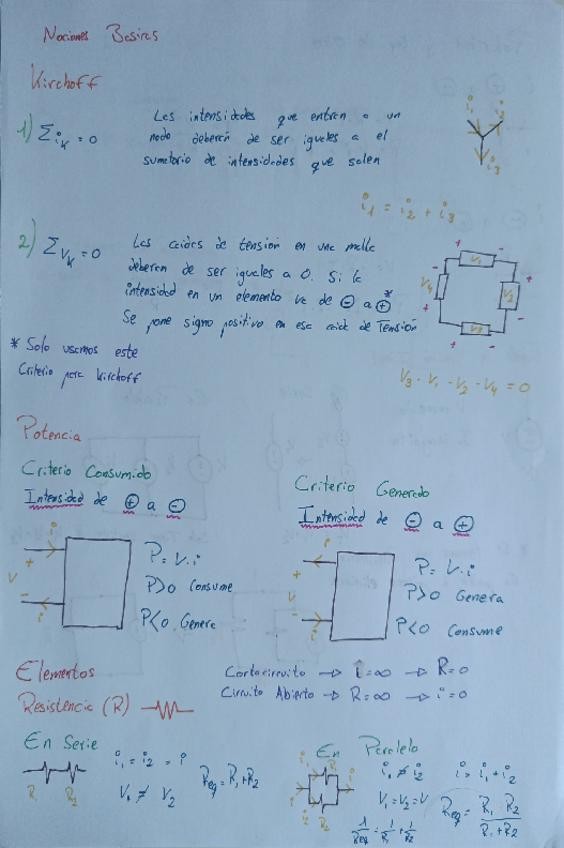 Nociones Basicas
Kirchoff
1) Σ i_k = 0
Las intensidades que entran a un
nodo deberán de ser iguales a el
sumatorio de intensidades que salen
i1 i2
i3
i1 = i2 + i3
2) Σ V_k = 0
Las caidas de tensión en una malla
deberan de ser iguales a 0. Si la
intensidad en un elemento va de ⊖ a ⊕*
Se pone signo positivo en esa caida de Tensión
+ V1 - +
V4 V2
- + V3 - -
* Solo usamos este
Criterio para Kirchoff
V3 - V1 - V2 - V4 = 0
Potencia
Criterio Consumido
Intensidad de ⊕ a ⊖
i
+
V
-
i
P = V·i
P>0 Consume
P<0 Genera
Criterio Generado
Intensidad de ⊖ a ⊕
i
+
V
-
i
P = V·i
P>0 Genera
P<0 Consume
Elementos
Cortocircuito → i=∞ → R=0
Circuito Abierto → R=∞ → i=0
Resistencia (R)
En Serie
R1 R2
i1 = i2 = i
V1 ≠ V2
Req = R1+R2
En Paralelo
i1 R1
i
i2 R2
i1 ≠ i2
i = i1 + i2
V1 = V2 = V
1/Req = 1/R1 + 1/R2
Req = R1 R2 / R1+R2